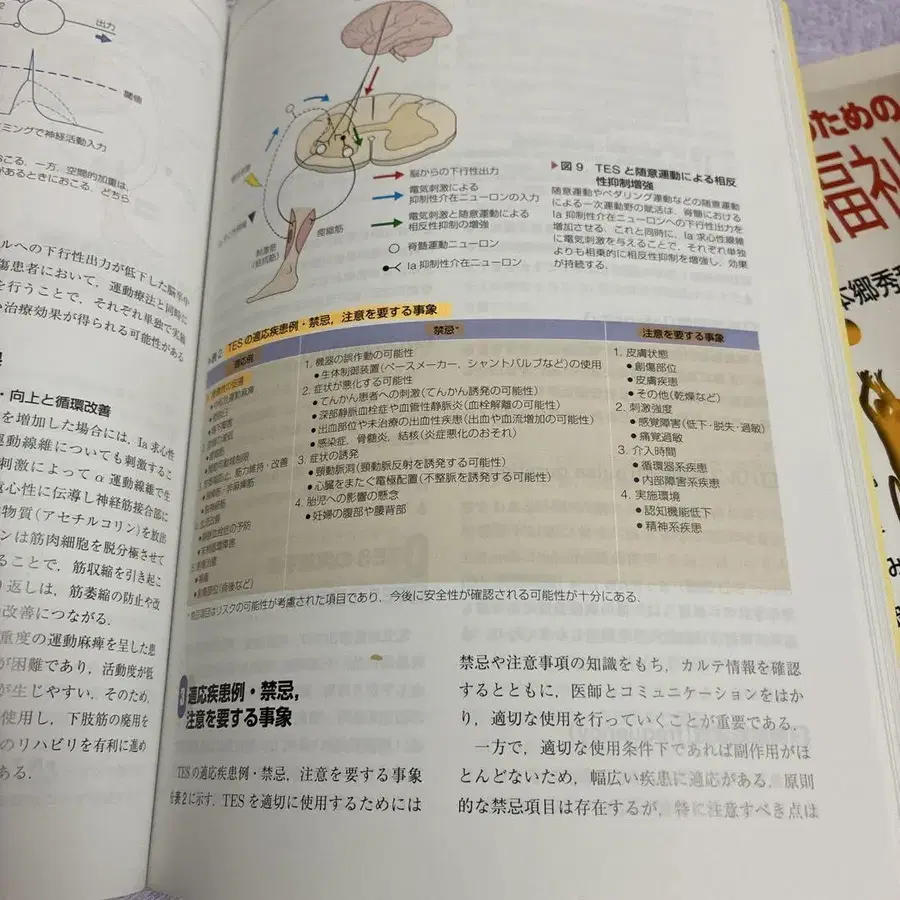 出力
閾値
ミングで神経活動入力
おこる．一方，空間的加重は，
があるときにおこる．どちら
ルへの下行性出力が低下した脳卒中
傷患者において，運動療法と同時に
を行うことで，それぞれ単独で実施
治療効果が得られる可能性がある
・向上と循環改善
を増加した場合には，Ia 求心性
運動線維についても刺激するこ
刺激によって α 運動線維で生
心性に伝導し神経筋接合部に
物質（アセチルコリン）を放出
ンは筋肉細胞を脱分極させて
ることで，筋収縮を引き起こ
り返しは，筋萎縮の防止や改
改善につながる．
重度の運動麻痺を呈した患
が困難であり，活動度が低
が生じやすい．そのため，
使用し，下肢筋の廃用を
のリハビリを有利に進め
ある．
脳からの下行性出力
電気刺激による
抑制性介在ニューロンの入力
電気刺激と随意運動による
相反性抑制の増強
脊髄運動ニューロン
Ia 抑制性介在ニューロン
痙縮筋
刺激筋
（拮抗筋）
▶図 9 TES と随意運動による相反
性抑制増強
随意運動やペダリング運動などの随意運動
による一次運動野の賦活は，脊髄における
Ia 抑制性介在ニューロンへの下行性出力を
増加させる．これと同時に，Ia 求心性線維
に電気刺激を与えることで，それぞれ単独
よりも相乗的に相反性抑制を増強し，効果
が持続する．
表 2 TES の適応疾患例・禁忌，注意を要する事象
適応例
禁忌*
注意を要する事象
1. 機器の誤作動の可能性
●生体制御装置（ペースメーカー，シャントバルブなど）の使用
2. 症状が悪化する可能性
●てんかん患者への刺激（てんかん誘発の可能性）
●深部静脈血栓症や血管性静脈炎（血栓解離の可能性）
●出血部位や未治療の出血性疾患（出血や血流増加の可能性）
●感染症，骨髄炎，結核（炎症悪化のおそれ）
3. 症状の誘発
●頸動脈洞（頸動脈反射を誘発する可能性）
●心臓をまたぐ電極配置（不整脈を誘発する可能性）
4. 胎児への影響の懸念
●妊婦の腹部や腰背部
1. 皮膚状態
●創傷部位
●皮膚疾患
●その他（乾燥など）
2. 刺激強度
●感覚障害（低下・脱失・過敏）
●痛覚過敏
3. 介入時間
●循環器系疾患
●内部障害系疾患
4. 実施環境
●認知機能低下
●精神系疾患
項目はリスクの可能性が考慮された項目であり，今後に安全性が確認される可能性が十分にある．
3 適応疾患例・禁忌，
注意を要する事象
TES の適応疾患例・禁忌，注意を要する事象
を表 2 に示す．TES を適切に使用するためには
禁忌や注意事項の知識をもち，カルテ情報を確認
するとともに，医師とコミュニケーションをはか
り，適切な使用を行っていくことが重要である．
一方で，適切な使用条件下であれば副作用がほ
とんどないため，幅広い疾患に適応がある．原則
的な禁忌項目は存在するが，特に注意すべき点は
ための
福祉
本郷秀